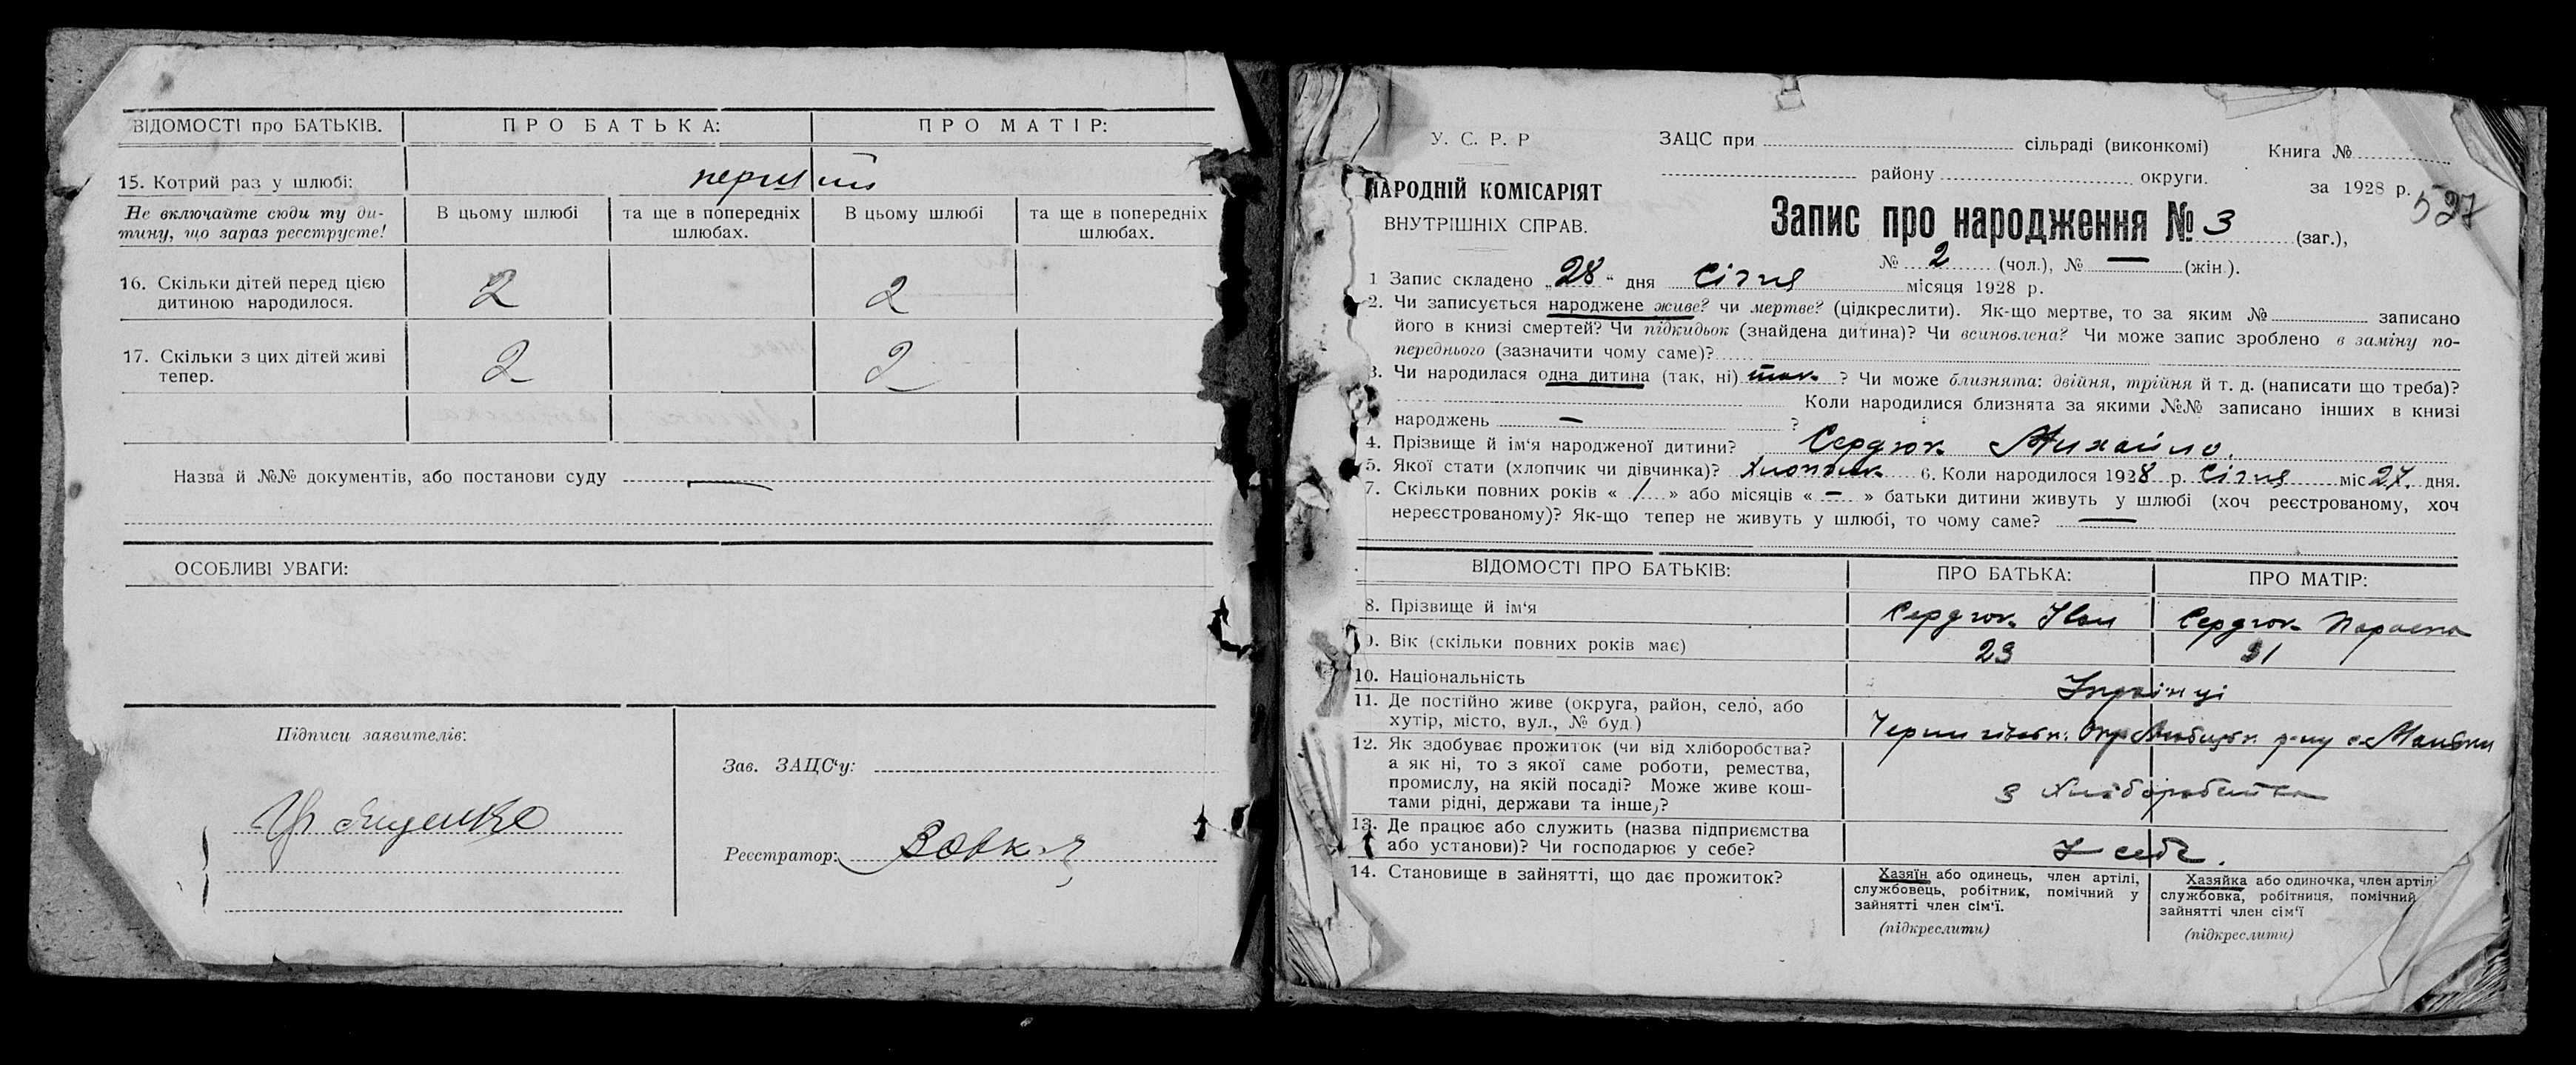 ВІДОМОСТІ про БАТЬКІВ. ПРО БАТЬКА: ПРО МАТІР:
15. Котрий раз у шлюбі: перший
Не включайте сюди ту ди-
тину, що зараз реєструєте!
В цьому шлюбі
та ще в попередніх
шлюбах.
В цьому шлюбі
та ще в попередніх
шлюбах.
16. Скільки дітей перед цією
дитиною народилося.
2 2
17. Скільки з цих дітей живі
тепер.
2 2
Назва й №№ документів, або постанови суду —
ОСОБЛИВІ УВАГИ:
Підписи заявителів:
Зав. ЗАЦС'у:
Реєстратор: Вовк
У. С. Р. Р
НАРОДНІЙ КОМІСАРІЯТ
ВНУТРІШНІХ СПРАВ.
ЗАЦС при сільраді (виконкомі)
району округи.
Книга №
за 1928 р.
527
Запис про народження № 3 (заг.),
№ 2 (чол.), № — (жін.).
1 Запис складено „28“ дня Січня місяця 1928 р.
2. Чи записується народжене живе? чи мертве? (цідкреслити). Як-що мертве, то за яким № записано
його в книзі смертей? Чи підкидьок (знайдена дитина)? Чи всиновлена? Чи може запис зроблено в заміну по-
переднього (зазначити чому саме)?
3. Чи народилася одна дитина (так, ні) так ? Чи може близнята: двійня, трійня й т. д. (написати що треба)?
Коли народилися близнята за якими №№ записано інших в книзі
народжень — ?
4. Прізвище й ім'я народженої дитини? Сердюк Михайло.
5. Якої стати (хлопчик чи дівчинка)? Хлопчик 6. Коли народилося 1928 р. Січня міс 27. дня.
7. Скільки повних років « 1 » або місяців « — » батьки дитини живуть у шлюбі (хоч реєстрованому, хоч
нереєстрованому)? Як-що тепер не живуть у шлюбі, то чому саме? —
ВІДОМОСТІ ПРО БАТЬКІВ: ПРО БАТЬКА: ПРО МАТІР:
8. Прізвище й ім'я Сердюк Іван Сердюк Параска
9. Вік (скільки повних років має) 23 31
10. Національність Українці
11. Де постійно живе (округа, район, село, або
хутір, місто, вул., № буд.)
Чернигівськ. Окр. р-ну с.
12. Як здобуває прожиток (чи від хліборобства?
а як ні, то з якої саме роботи, ремества,
промислу, на якій посаді? Може живе кош-
тами рідні, держави та інше,)?
З Хліборобства
13. Де працює або служить (назва підприємства
або установи)? Чи господарює у себе?
У себе.
14. Становище в зайнятті, що дає прожиток?
Хазяїн або одинець, член артілі,
службовець, робітник, помічний у
зайнятті член сім'ї.
(підкреслити)
Хазяйка або одиночка, член артілі
службовка, робітниця, помічний
зайнятті член сім'ї
(підкреслити)